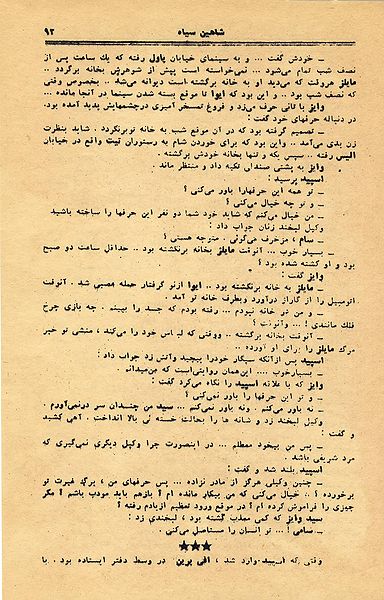 شاهین سیاه ۹۲
ـ خودش گفت ... و به سینمای خیابان پاول رفته که یک ساعت پس از
نصف شب تمام می‌شود ... نمی‌خواسته است پیش از شوهرش بخانه برگردد ..
مایلز هروقت که می‌دید او به خانه برگشته است دیوانه می‌شد .. بخصوص وقتی
که نصف شب بود .. و این بود که ایوا تا موقع بسته شدن سینما در آنجا مانده ...
وایز با تانی حرف می‌زد و فروغ تمسخر آمیزی درچشمهایش پدید آمده بود.
در دنباله حرفهای خود گفت :
ـ تصمیم گرفته بود که در آن موقع شب به خانه نوبرنگردد . شاید بنظرت
زن بدی می‌آمد .. واین بود که برای خوردن شام به رستوران تیت واقع در خیابان
الیس رفته .. سپس یکه و تنها بخانه خودش برگشته .
وایز به پشتی صندلی تکیه داد و منتظر ماند .
اسپید پرسید :
ـ تو همه این حرفهارا باور می‌کنی ؟
ـ و تو چه خیال می‌کنی ؟
ـ من خیال می‌کنم که شاید خود شما دو نفر این حرفها را ساخته باشید
وکیل لبخند زنان جواب داد :
ـ سام ، مزخرف می‌گوئی . متوجه هستی ؟
ـ بسیار خوب ... آنوقت مایلز بخانه برنگشته بود .. حداقل ساعت دو صبح
بود و او کشته شده بود ؟
وایز گفت :
مایلز به خانه برنگشته بود .. ایوا ازنو گرفتار حمله عصبی شد . آنوقت
اتومبیل را از گاراژ درآورد وبطرف خانه تو آمد .
ـ و من در خانه نبودم ... رفته بودم که جسد را ببینم . چه بازی چرخ
فلک مانندی ! ... وآنوقت ؟
ـ آنوقت بخانه برگشته .. ووقتی که لباس خود را می‌کند ، منشی تو خبر
مرگ مایلز را برای او آورده ..
اسپید پس ازآنکه سیگار خودرا پیچید وآتش زد جواب داد :
ـ بسیارخوب .... این‌همان روایتی‌است که من‌میدانم .
وایز که با علاقه اسپید را نگاه می‌کرد گفت :
ـ و تو این حرفها را باور نمی‌کنی ؟
ـ نه باور می‌کنم . ونه باور نمی‌کنم ... سید من چندان سر درنمی‌آورم .
وکیل لبخند زد و شانه ها را بحالت خسته ئی بالا انداخت . آهی کشید
و گفت :
ـ پس من بیخود معطلم ... در اینصورت چرا وکیل دیگری نمی‌گیری که
مرد شریفی باشد .
اسپید بلند شد و گفت :
ـ چنین وکیلی هرگز از مادر نزاده ... پس حرفهای من ، برگ غیرت تو
برخورده ؟ .. خیال می‌کنی که من بیکار مانده ام ؟ بازهم باید مودب باشم ؟ مگر
چیزی را فراموش کرده ام ؟ در موقع ورود تعظیم ازیادم رفته ؟
سید وایز که کمی معذب گشته بود ، لبخندی زد :
ـ سامی ! تو انسان را مستاصل می‌کنی .
★★★
وقتی که اسپید وارد شد ، افی پرین در وسط دفتر ایستاده بود . با